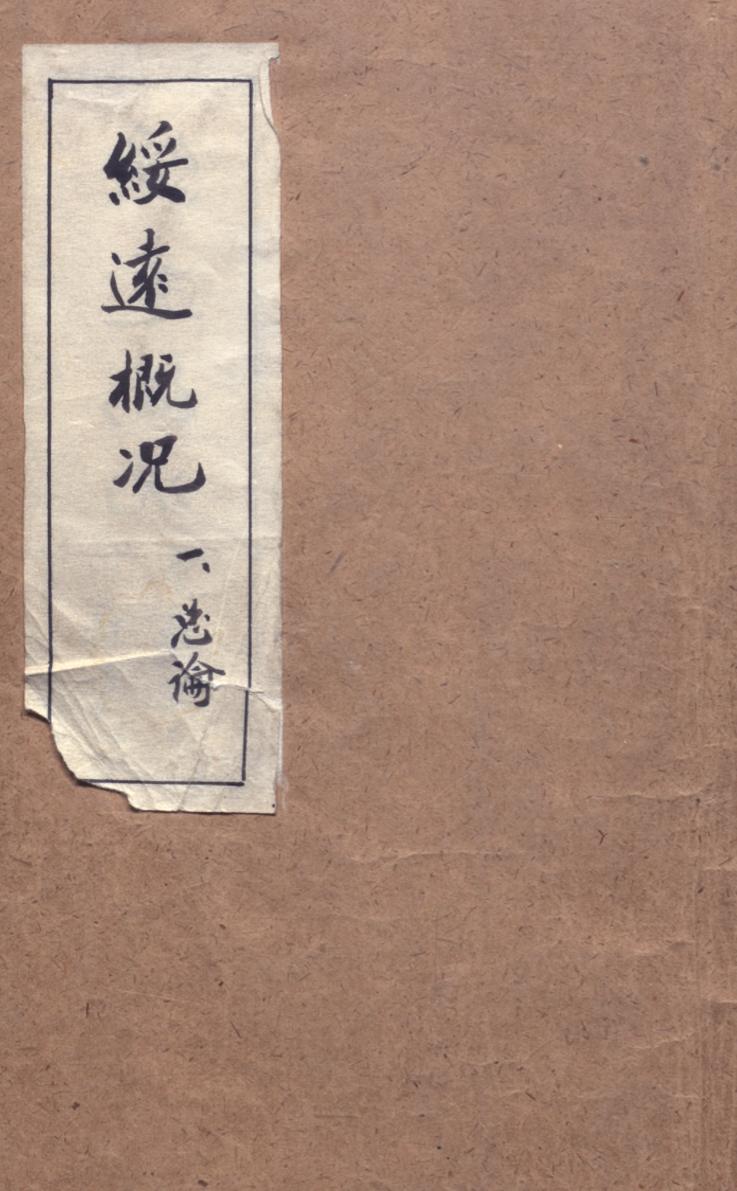 綏遠概況
一、总論